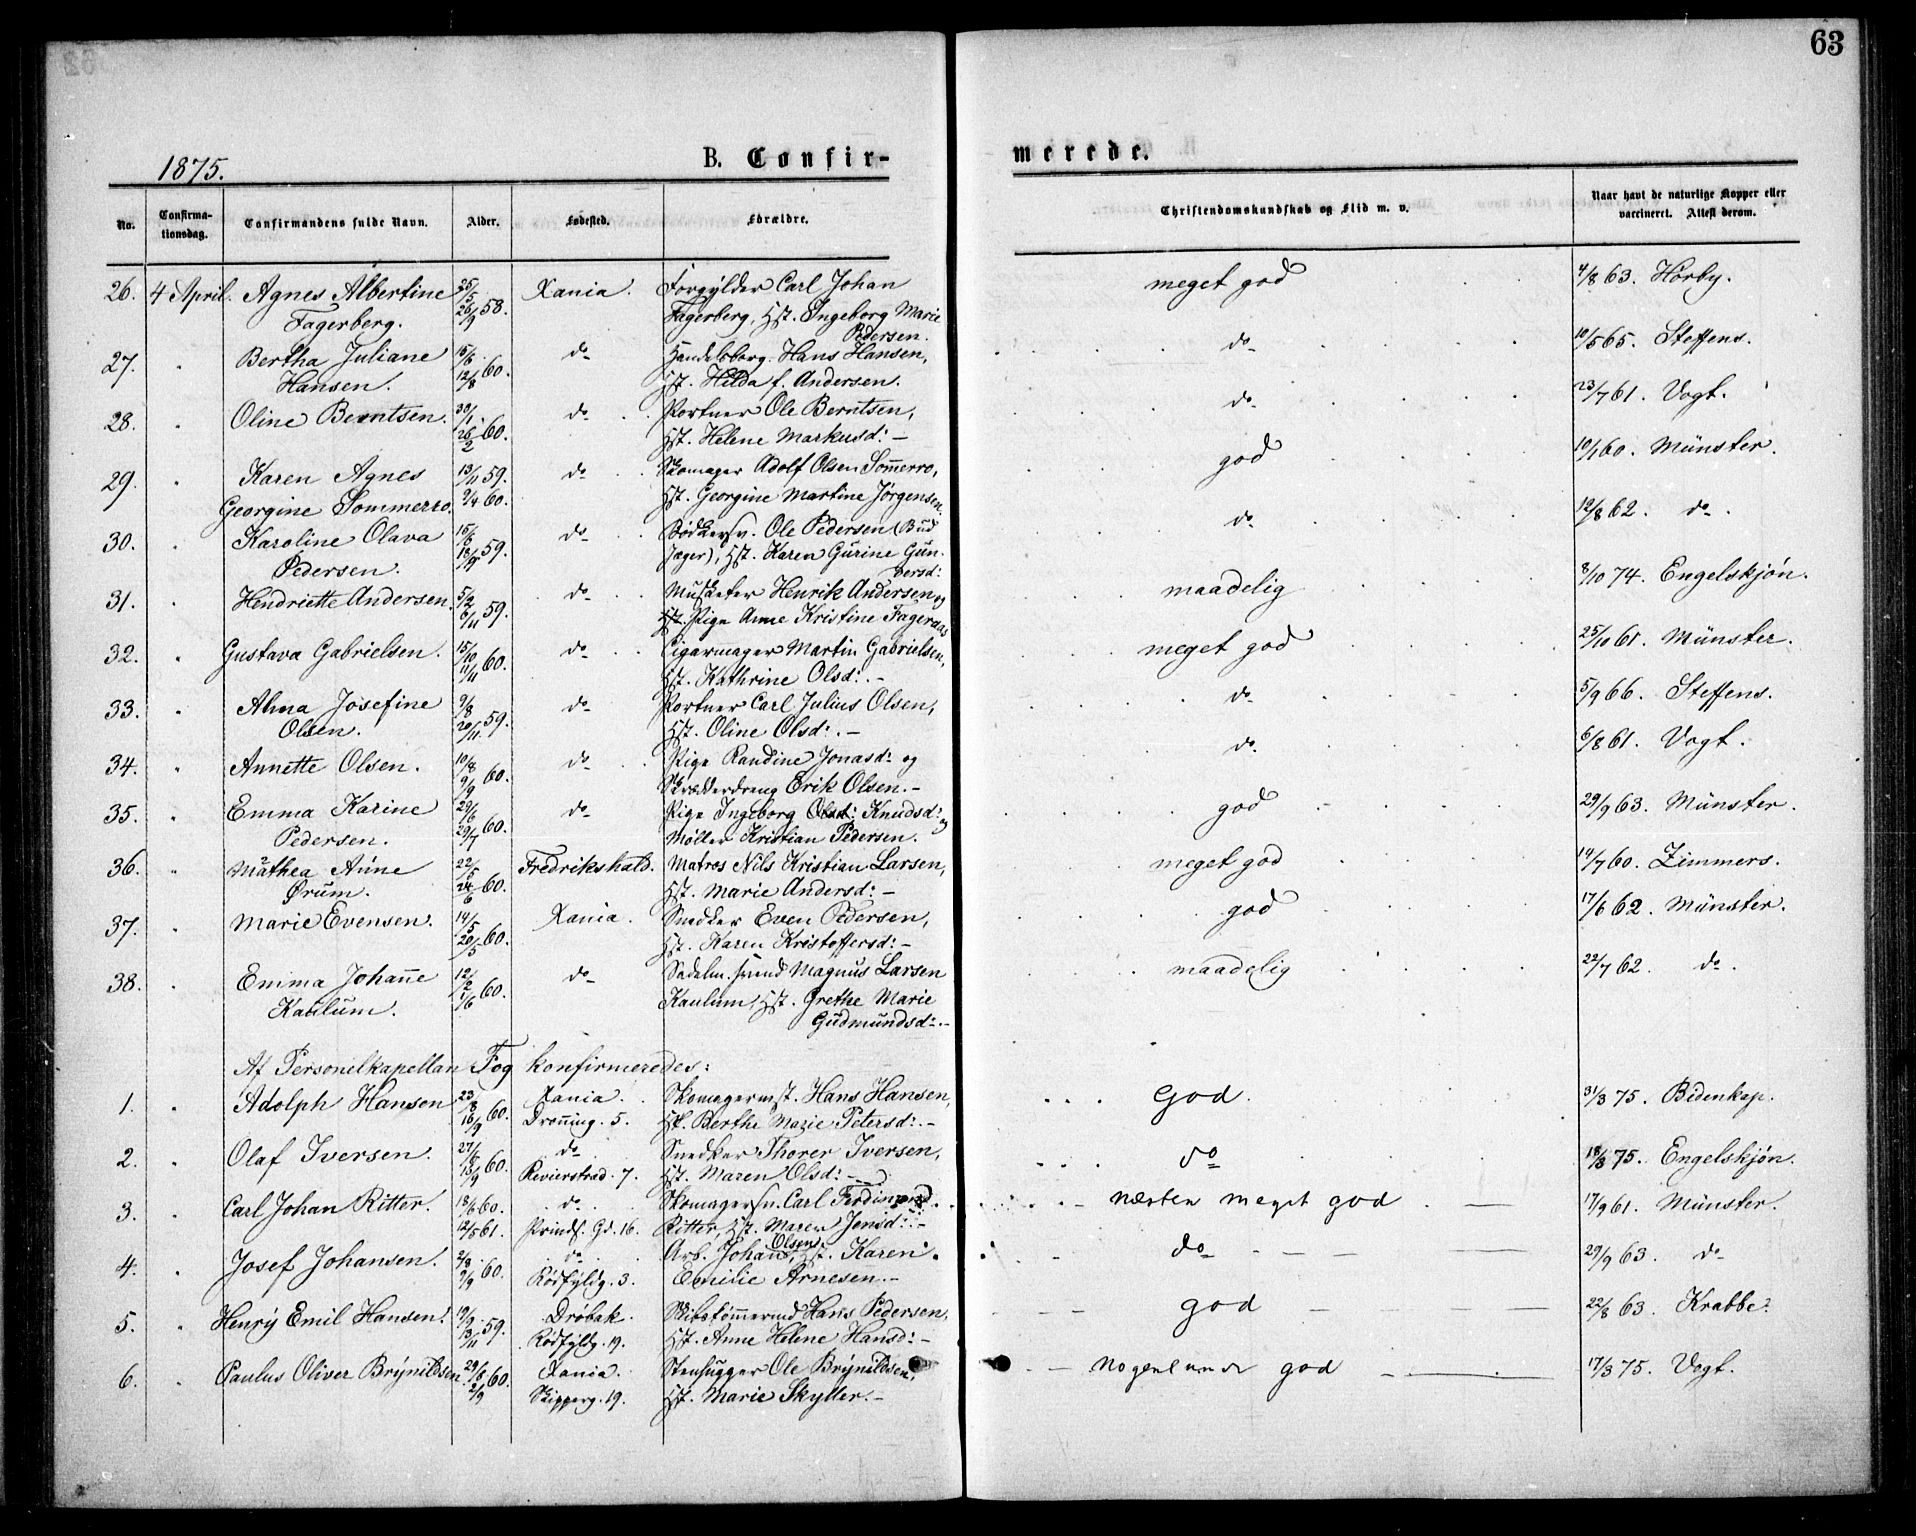 63
1875.
B. Confir-
merede.
No. Confirma-tionsdag. Confirmandens fulde Navn. Alder. Fødested. Forældre. Christendomskundskab og Flid m. v. Naar havt de naturlige Kopper eller vaccineret. Attest derom.
26. 4 April. Agnes Albertine 25/5 Xania. Forgylder Carl Johan meget god 4/8 63. Hørby.
Fagerberg. 26/9 58. Fagerberg, Hst. Ingeborg Marie
Pedersen.
27. " Bertha Juliane 15/6 do Handelsborg. Hans Hansen, do 10/5 65. Steffens.
Hansen. 12/8 60. Hst. Hilda f. Andersen.
28. " Oline Berntsen. 30/1 do Portner Ole Berntsen, do 23/7 61. Vogt.
26/2 60. Hst. Helene Markusd: –
29. " Karen Agnes 13/11 59. do Skomager Adolf Olsen Sommerro, god 10/1 60. Münster.
Georgine Sommerro. 9/4 60. Hst. Georgine Martine Jørgensen.
30. " Karoline Olava 15/6 do Bødkersv. Ole Pedersen (Bud do 12/8 62. do.
Pedersen. 18/9 59. Jæger), Hst. Karen Gurine Gun-
bersd:
31. " Hendriette Andersen. 5/2 do Musketer Henrik Andersen og maadelig 8/10 74. Engelskjøn.
6/11 59. Hst. Pige Anne Kristine Fageraas
32. " Gustava Gabrielsen. 15/10 do Cigarmager Martin Gabrielsen, meget god 25/10 61. Münster.
11/11 60. Hst. Kathrine Olsd: –
33. " Alma Josefine 9/8 do Portner Carl Julius Olsen, do 5/9 66. Steffens.
Olsen. 20/11 59. Hst. Oline Olsd: –
34. " Annette Olsen. 10/8 do Pige Randine Jonasd: og do 6/8 61. Vogt.
9/9 60. Skrædderdreng Erik Olsen. –
35. " Emma Karine 29/6 do Pige Ingeborg Knudsd: og god 29/9 63. Münster.
Pedersen. 29/7 60. Møller Kristian Pedersen.
36. " Mathea Anne 22/5 Fredrikshald. Matros Nils Kristian Larsen, meget god 14/7 60. Zimmers.
Ørum. 24/6 60. Hst. Marie Andersd: –
37. " Marie Evensen. 14/5 Xania. Snedker Even Pedersen, god 17/6 62. Münster.
20/5 60. Hst. Karen Kristoffersd: –
38. " Emma Johanne 12/2 do Sadelm. svend Magnus Larsen maadelig 22/7 62. do.
Kaulum. 1/6 60. Kaulum, Hst. Grethe Marie
Gudmundsd: –
Af Personelkapellan Fog konfirmeredes:
1. " Adolph Hansen 23/8 Xania. Skomagermst. Hans Hansen, God. 31/3 75. Bidenkap.
16/9 60. Dronning. 5. Hst. Berthe Marie Petersd: –
2. " Olaf Iversen. 27/6 do Snedker Thorer Iversen, do 18/3 75. Engelskjøn.
13/9 60. Revierstræd. 7. Hst. Maren Olsd: –
3. " Carl Johan Ritter. 18/6 60. do. Skomagersv. Carl Ferdinand næsten meget god 17/9 61. Münster.
12/5 61. Prinds. Gd. 16. Ritter, Hst. Maren Jensd: –
4. " Josef Johansen. 2/8 do Arb. Johans Olsen, Hst. Karen do 29/9 63. do
9/9 60. Rødfyldg. 3. Emilie Arnesen. –
5. " Henry Emil Hansen. 19/9 Drøbak. Skibstømmermd Hans Pedersen, god 22/8 63. Krabbe.
13/11 59. Rødfyldg. 19. Hst. Anne Helene Hansd: –
6. " Paulus Oliver Brynildsen. 29/6 60. Xania. Stenhugger Ole Brynildsen, nogenlunde god 17/3 75. Vogt.
2/9 Skipperg. 19. Hst. Marie Skyller. –